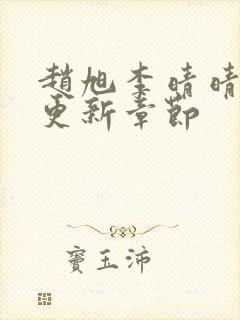 趙旭李晴晴
更新章節
竇玉沛